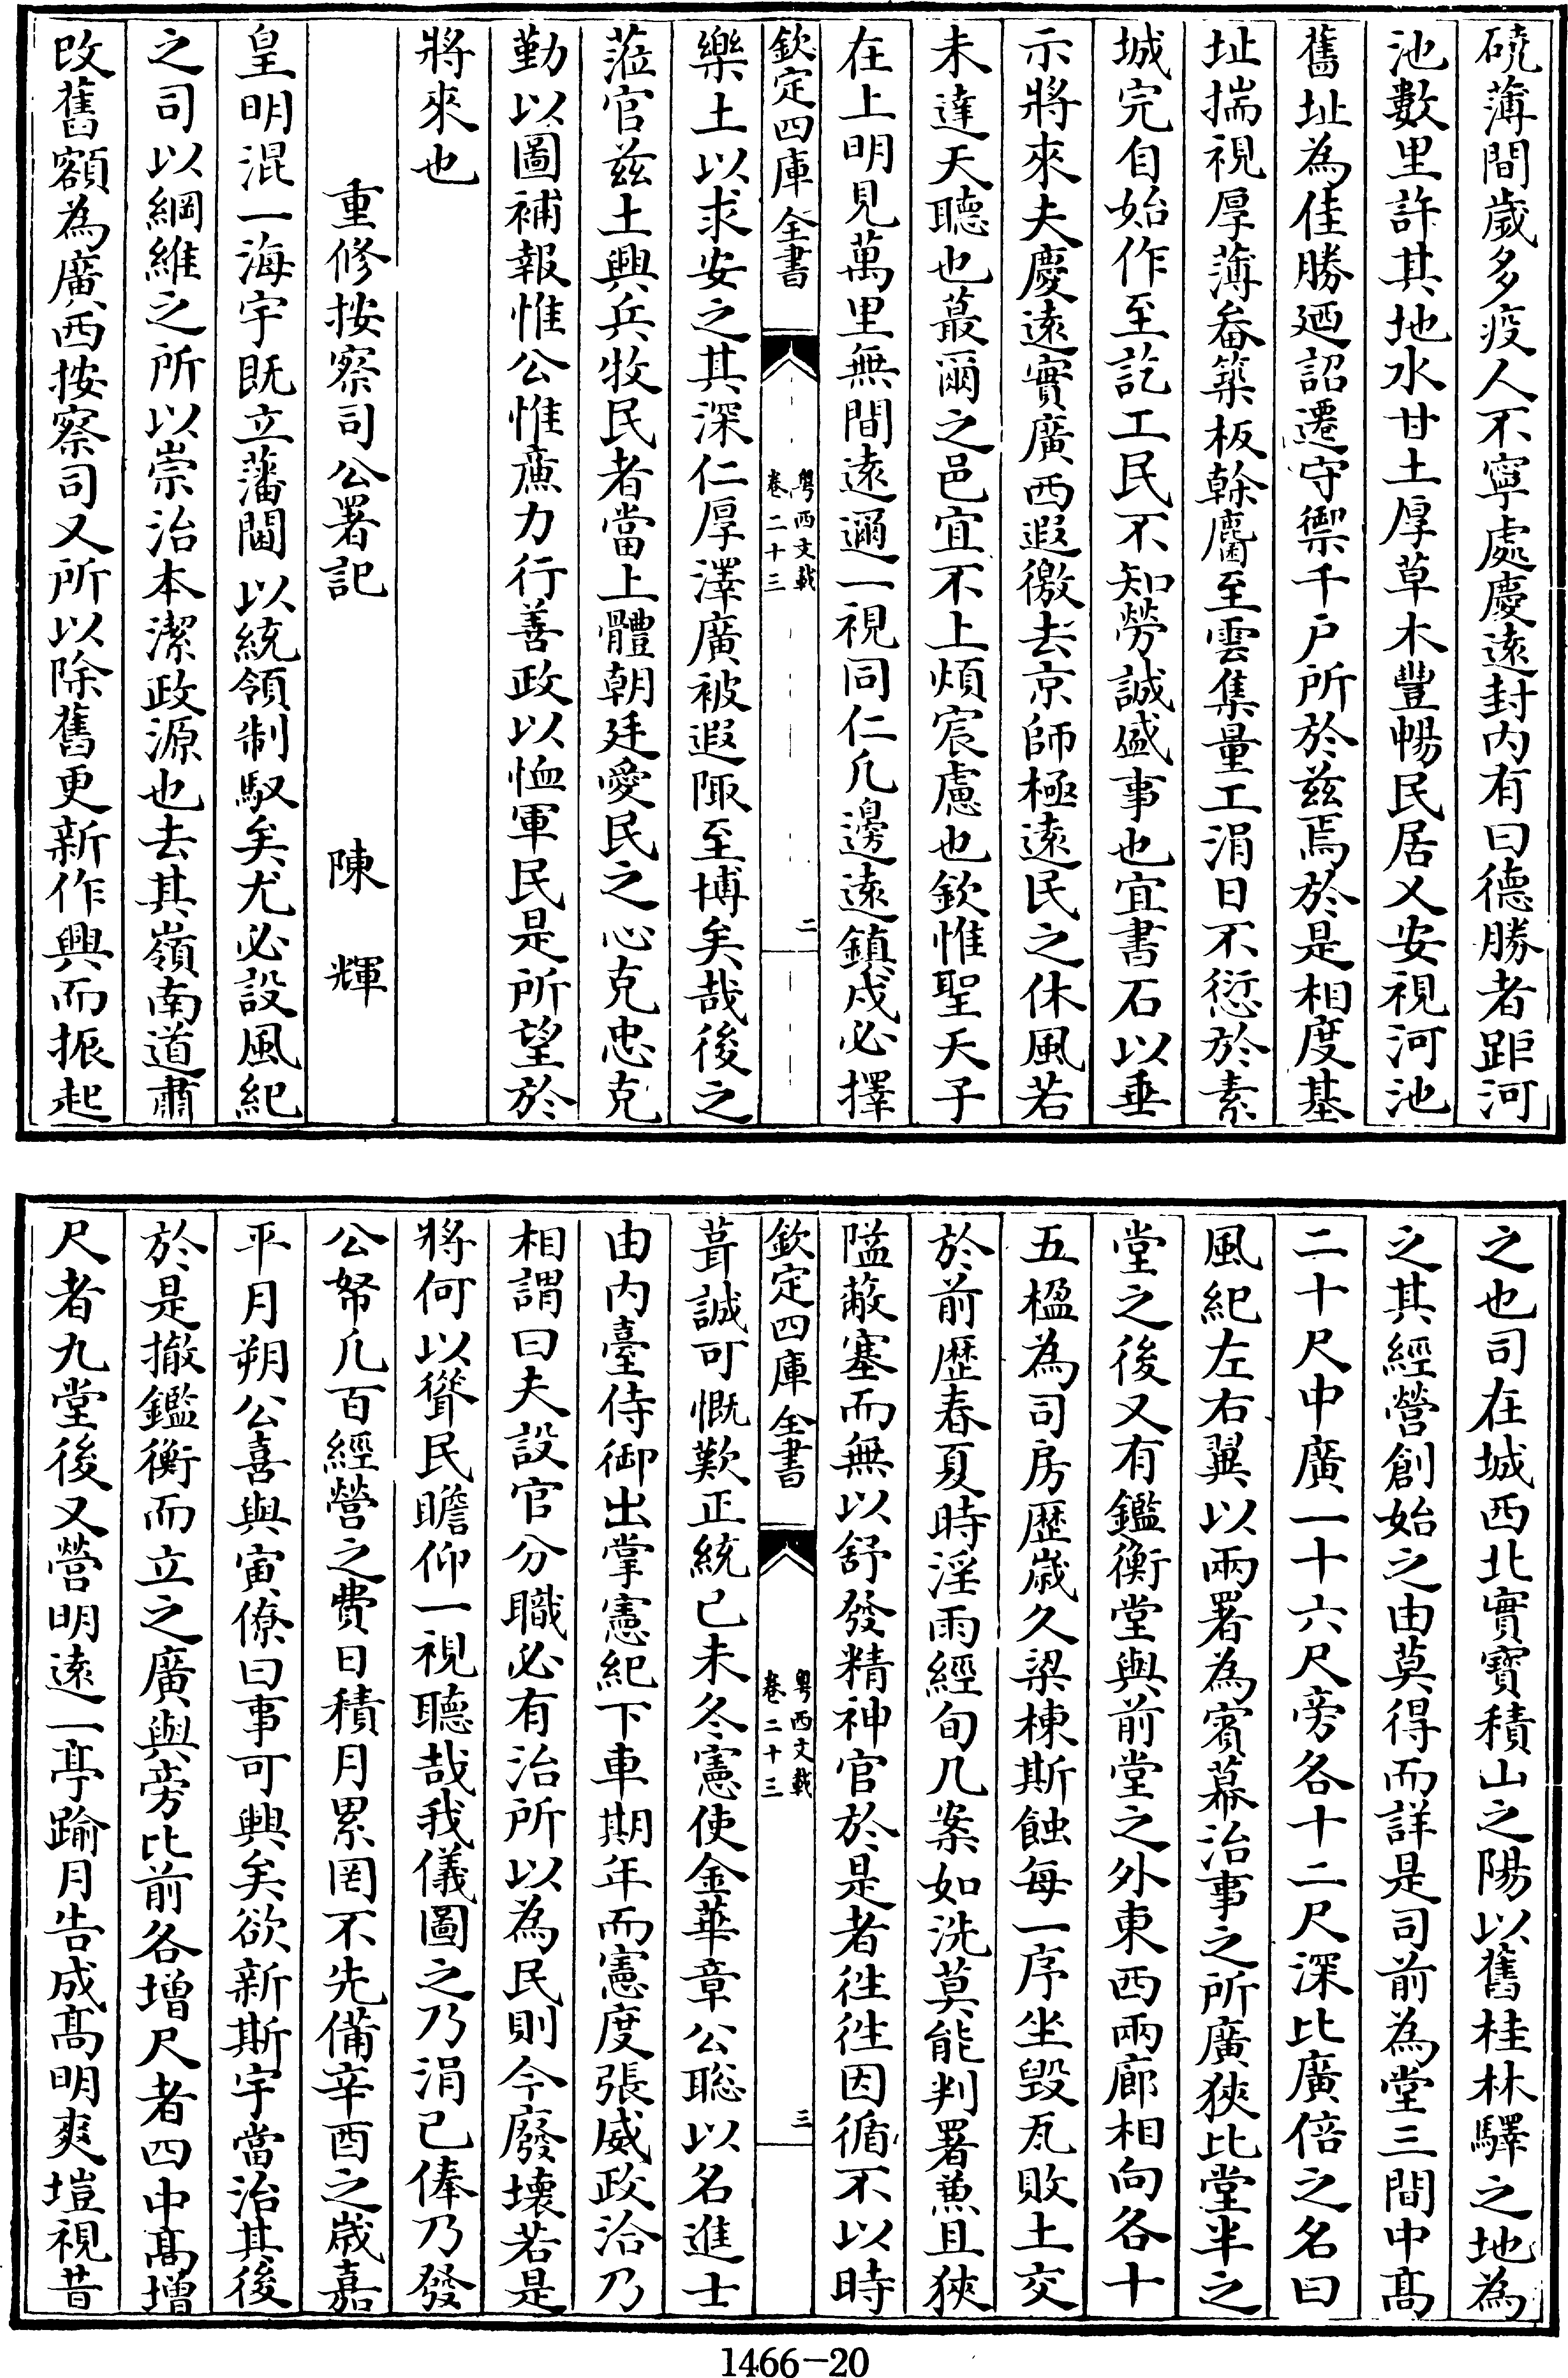 磽薄間歲多疫人不寧處慶遠封内有曰德勝者距河
池數里許其地水甘土厚草木豐暢民居乂安視河池
舊址為佳勝廼詔遷守禦千户所於兹焉於是相度基
址揣視厚薄畚築板榦麕至雲集量工涓日不愆於素
城完自始作至訖工民不知勞誠盛事也宜書石以垂
示將來夫慶遠實廣西遐徼去京師極遠民之休風若
未達天聽也蕞爾之邑宜不上煩宸慮也欽惟聖天子
在上明見萬里無間遠邇一視同仁凡邊遠鎮戍必擇
欽定四庫全書
粤西文載
卷二十三
二
樂土以求安之其深仁厚澤廣被遐陬至博矣哉後之
蒞官兹土興兵牧民者當上體朝廷愛民之心克忠克
勤以圖補報惟公惟廉力行善政以恤軍民是所望於
將來也
重修按察司公署記 陳輝
皇明混一海宇既立藩閫以統領制馭矣尤必設風紀
之司以綱維之所以崇治本潔政源也去其嶺南道肅
改舊額為廣西按察司又所以除舊更新作興而振起
之也司在城西北實寶積山之陽以舊桂林驛之地為
之其經營創始之由莫得而詳是司前為堂三間中髙
二十尺中廣一十六尺旁各十二尺深比廣倍之名曰
風紀左右翼以兩署為賓幕治事之所廣狹比堂半之
堂之後又有鑑衡堂與前堂之外東西兩廊相向各十
五楹為司房歴歳久梁棟斯蝕每一序坐毁瓦敗土交
於前歴春夏時淫雨經旬几案如洗莫能判署兼且狹
隘蔽塞而無以舒發精神官於是者徃徃因循不以時
欽定四庫全書
粤西文載
卷二十三
三
葺誠可慨歎正統己未冬憲使金華章公聡以名進士
由内臺侍御出掌憲紀下車期年而憲度張威政洽乃
相謂曰夫設官分職必有治所以為民則今廢壊若是
將何以聳民瞻仰一視聽哉我儀圖之乃涓已俸乃發
公帑凡百經營之費日積月累罔不先備辛酉之歳嘉
平月朔公喜與寅僚曰事可興矣欲新斯宇當治其後
於是撤鑑衡而立之廣與旁比前各增尺者四中髙增
尺者九堂後又營明逺一亭踰月告成髙明爽塏視昔
1466-20